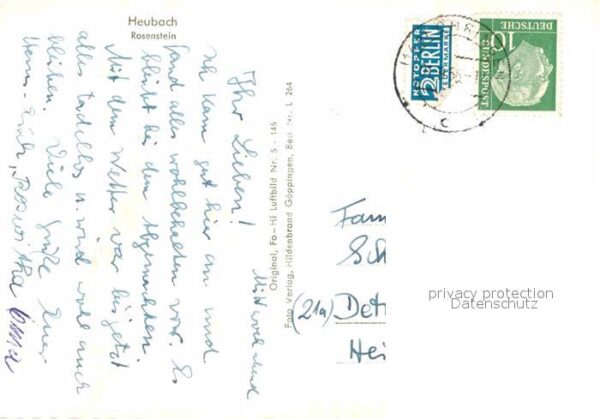 Heubach
Rosenstein
Mittwoch abend.
Ihr Lieben!
Ich kam gut hier an und
fand alles wohlbehalten vor. Es
bleibt bei dem Abgemachten.
Mit dem Wetter war bis jetzt
alles tadellos u. wird wohl auch
bleiben. Viele Grüße Euer
Herm. Erich, Roswitha
Oma
Original, Fa-Hi Luftbild Nr. 5 - 146
Foto Verlag, Hildenbrand Göppingen, Best. Nr. L 264
NOTOPFER
2 BERLIN
STEUERMARKE
10
DEUTSCHE
BUNDESPOST
c
Fam
Sch
(21a) Det
Hei
privacy protection
Datenschutz